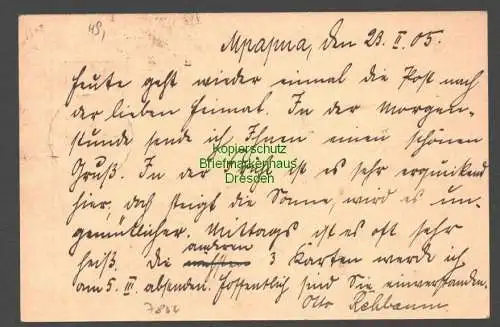 48,
Mpapua, den 23. II. 05.
Heute geht wieder einmal die Post nach
der lieben Heimat. In der Morgen-
stunde sende ich Ihnen einen schönen
Gruß. In der Früh ist es sehr erquickend
hier, doch steigt die Sonne, wird es un-
gemütlicher. Mittags ist es oft sehr
heiß. Die anderen 3 Karten werde ich
am 5. III. absenden. Hoffentlich sind Sie einverstanden.
Otto Rehbaum
Kopierschutz
Briefmarkenhaus
Dresden